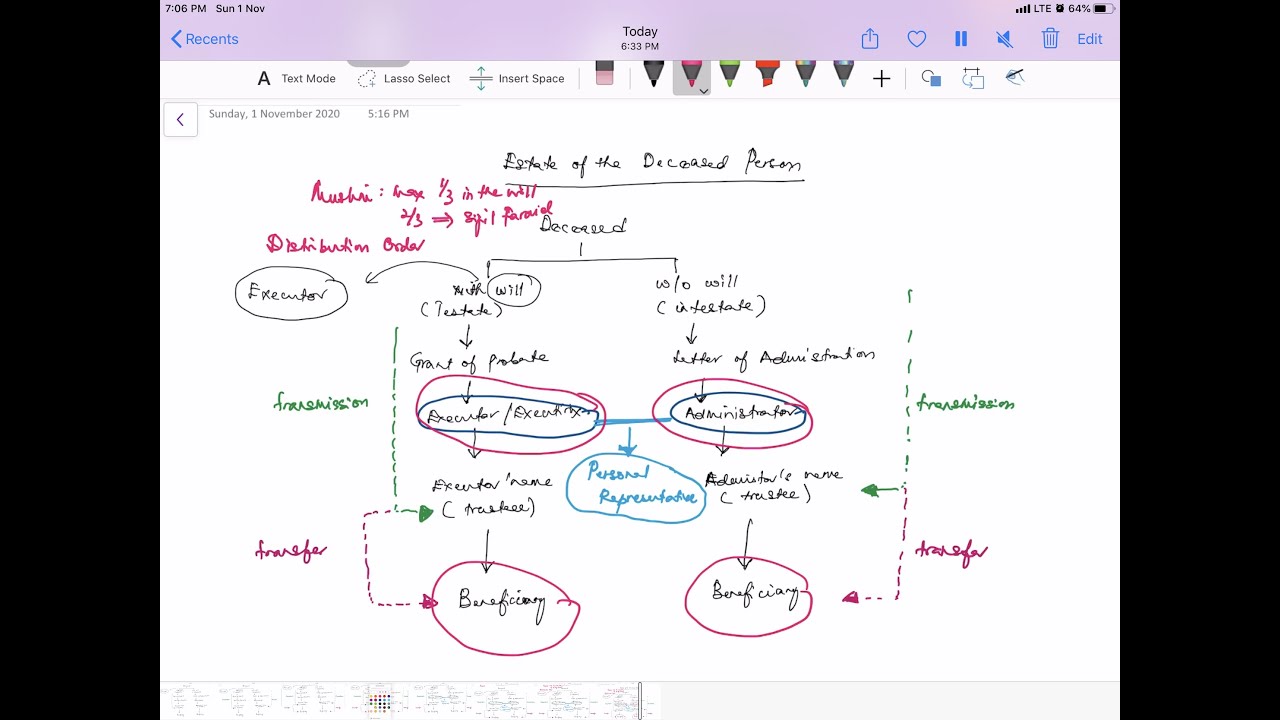 7:06 PM Sun 1 Nov
LTE 64%
Recents
Today
6:33 PM
Edit
Text Mode
Lasso Select
Insert Space
Sunday, 1 November 2020 5:16 PM
Estate of the Deceased Person
: max 1/3 in the will
2/3 ⇒ Sijil Faraid
Deceased
Distribution Order
Executor
with will
(Testate)
w/o will
(intestate)
Grant of Probate
Letter of Administration
transmission
Executor / Executrix
Administrator
transmission
Personal
Representative
Executor's name
(trustee)
name
(trustee)
transfer
transfer
Beneficiary
Beneficiary